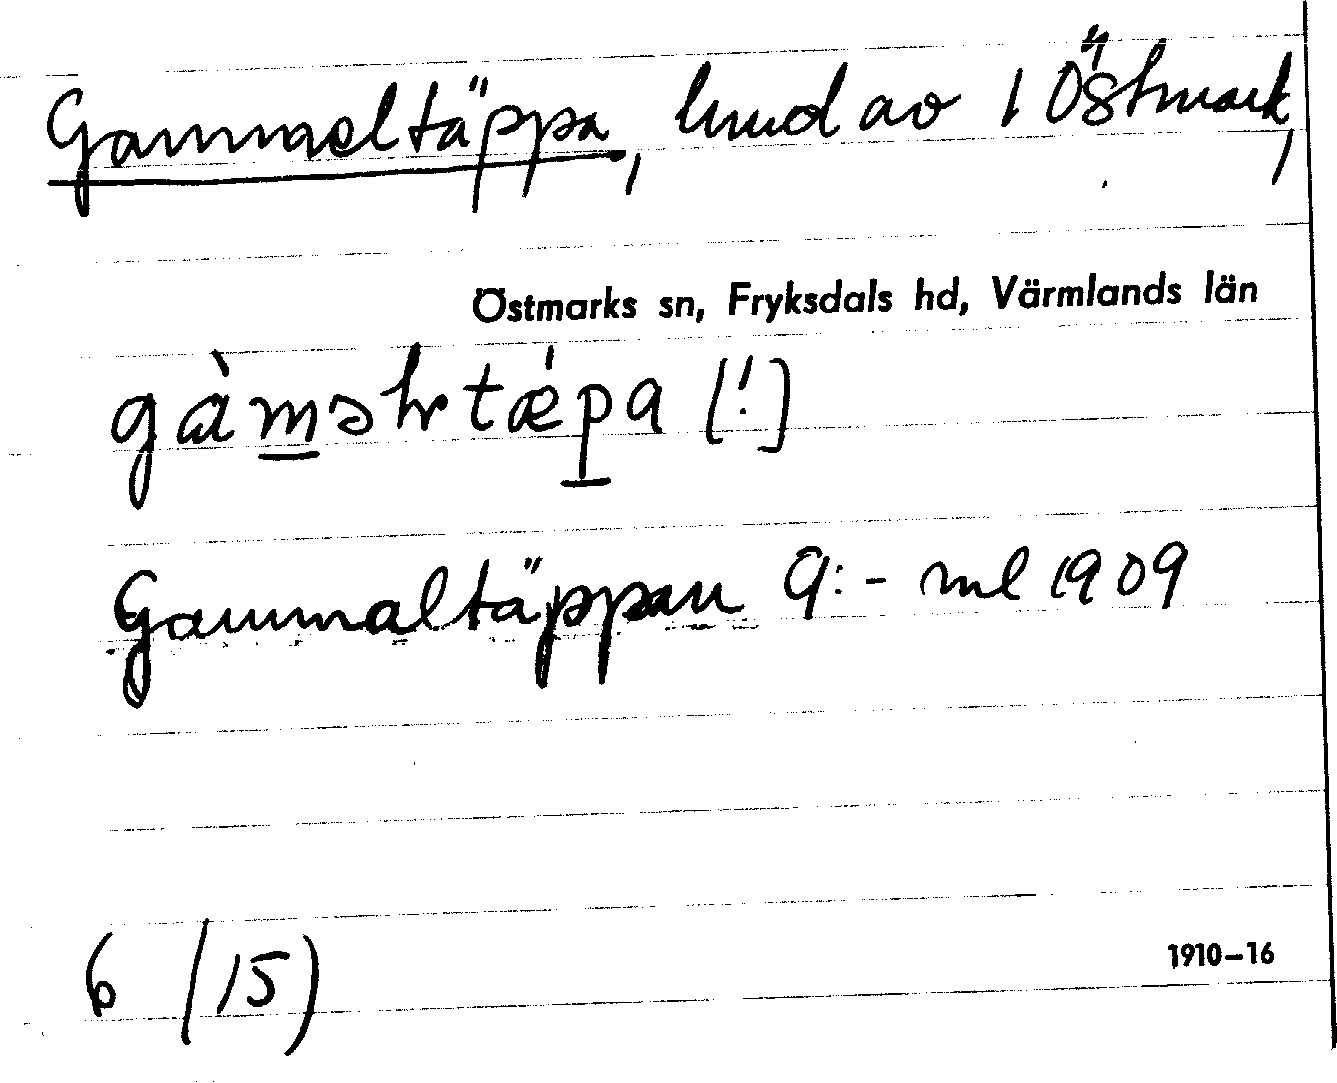 Gammaltäppa, hmd av 1 Östmark,
Östmarks sn, Fryksdals hd, Värmlands län
gàməltǽpa [!]
Gammaltäppan 9:- ml 1909
6 (15)
1910–16